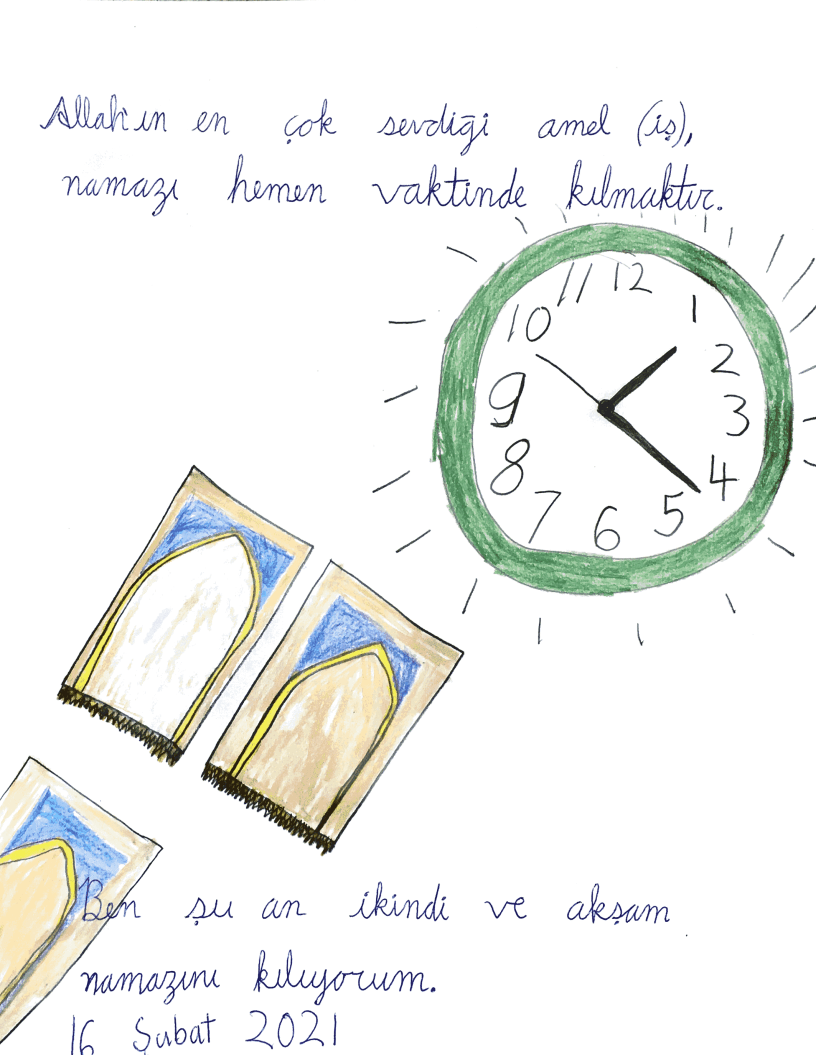 Allah'ın en çok sevdiği amel (iş),
namazı hemen vaktinde kılmaktır.
12
11
1
10
2
9
3
8
4
7
5
6
Ben şu an ikindi ve akşam
namazını kılıyorum.
16 Şubat 2021